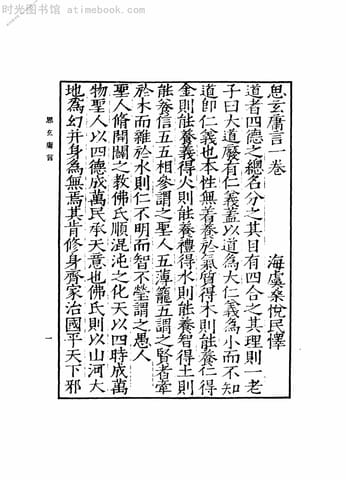 时光图书馆 - atimebook.com
思玄庸言一卷
海虞桑悅民懌
道者四德之總名分之其目有四合之其理則一老
子曰大道廢有仁義葢以道為大仁義為小而不知
道卽仁義也本性無善養於氣質得木則能養仁得
金則能養義得火則能養禮得水則能養智得土則
能養信五五相參謂之聖人五薄籠五謂之賢者牽
於木而雜於水則仁不明而智不瑩謂之愚人
聖人脩開闢之教佛氏順混沌之化天以四時成萬
物聖人以四德成萬民承天意也佛氏則以山河大
地為幻并身為無焉其肯修身齊家治國平天下邪
思玄庸言
一